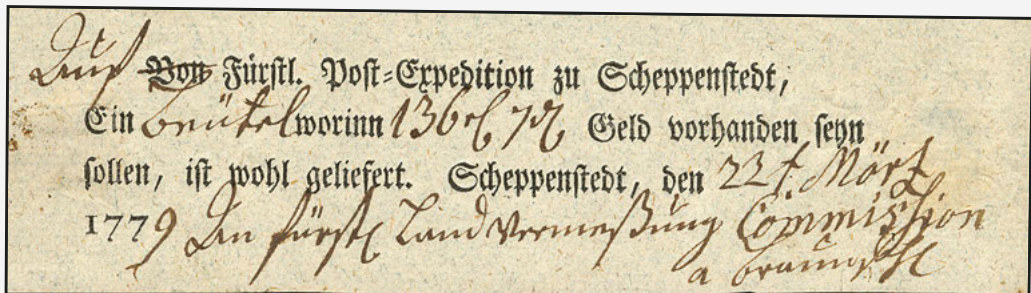 Auf Von Fürstl. Post-Expedition zu Scheppenstedt,
Ein Beütel worinn 136 Geld vorhanden seyn
sollen, ist wohl geliefert. Scheppenstedt, den 22t. Märt
1779 An fürstl Landvermeßung Commission
a braunschl